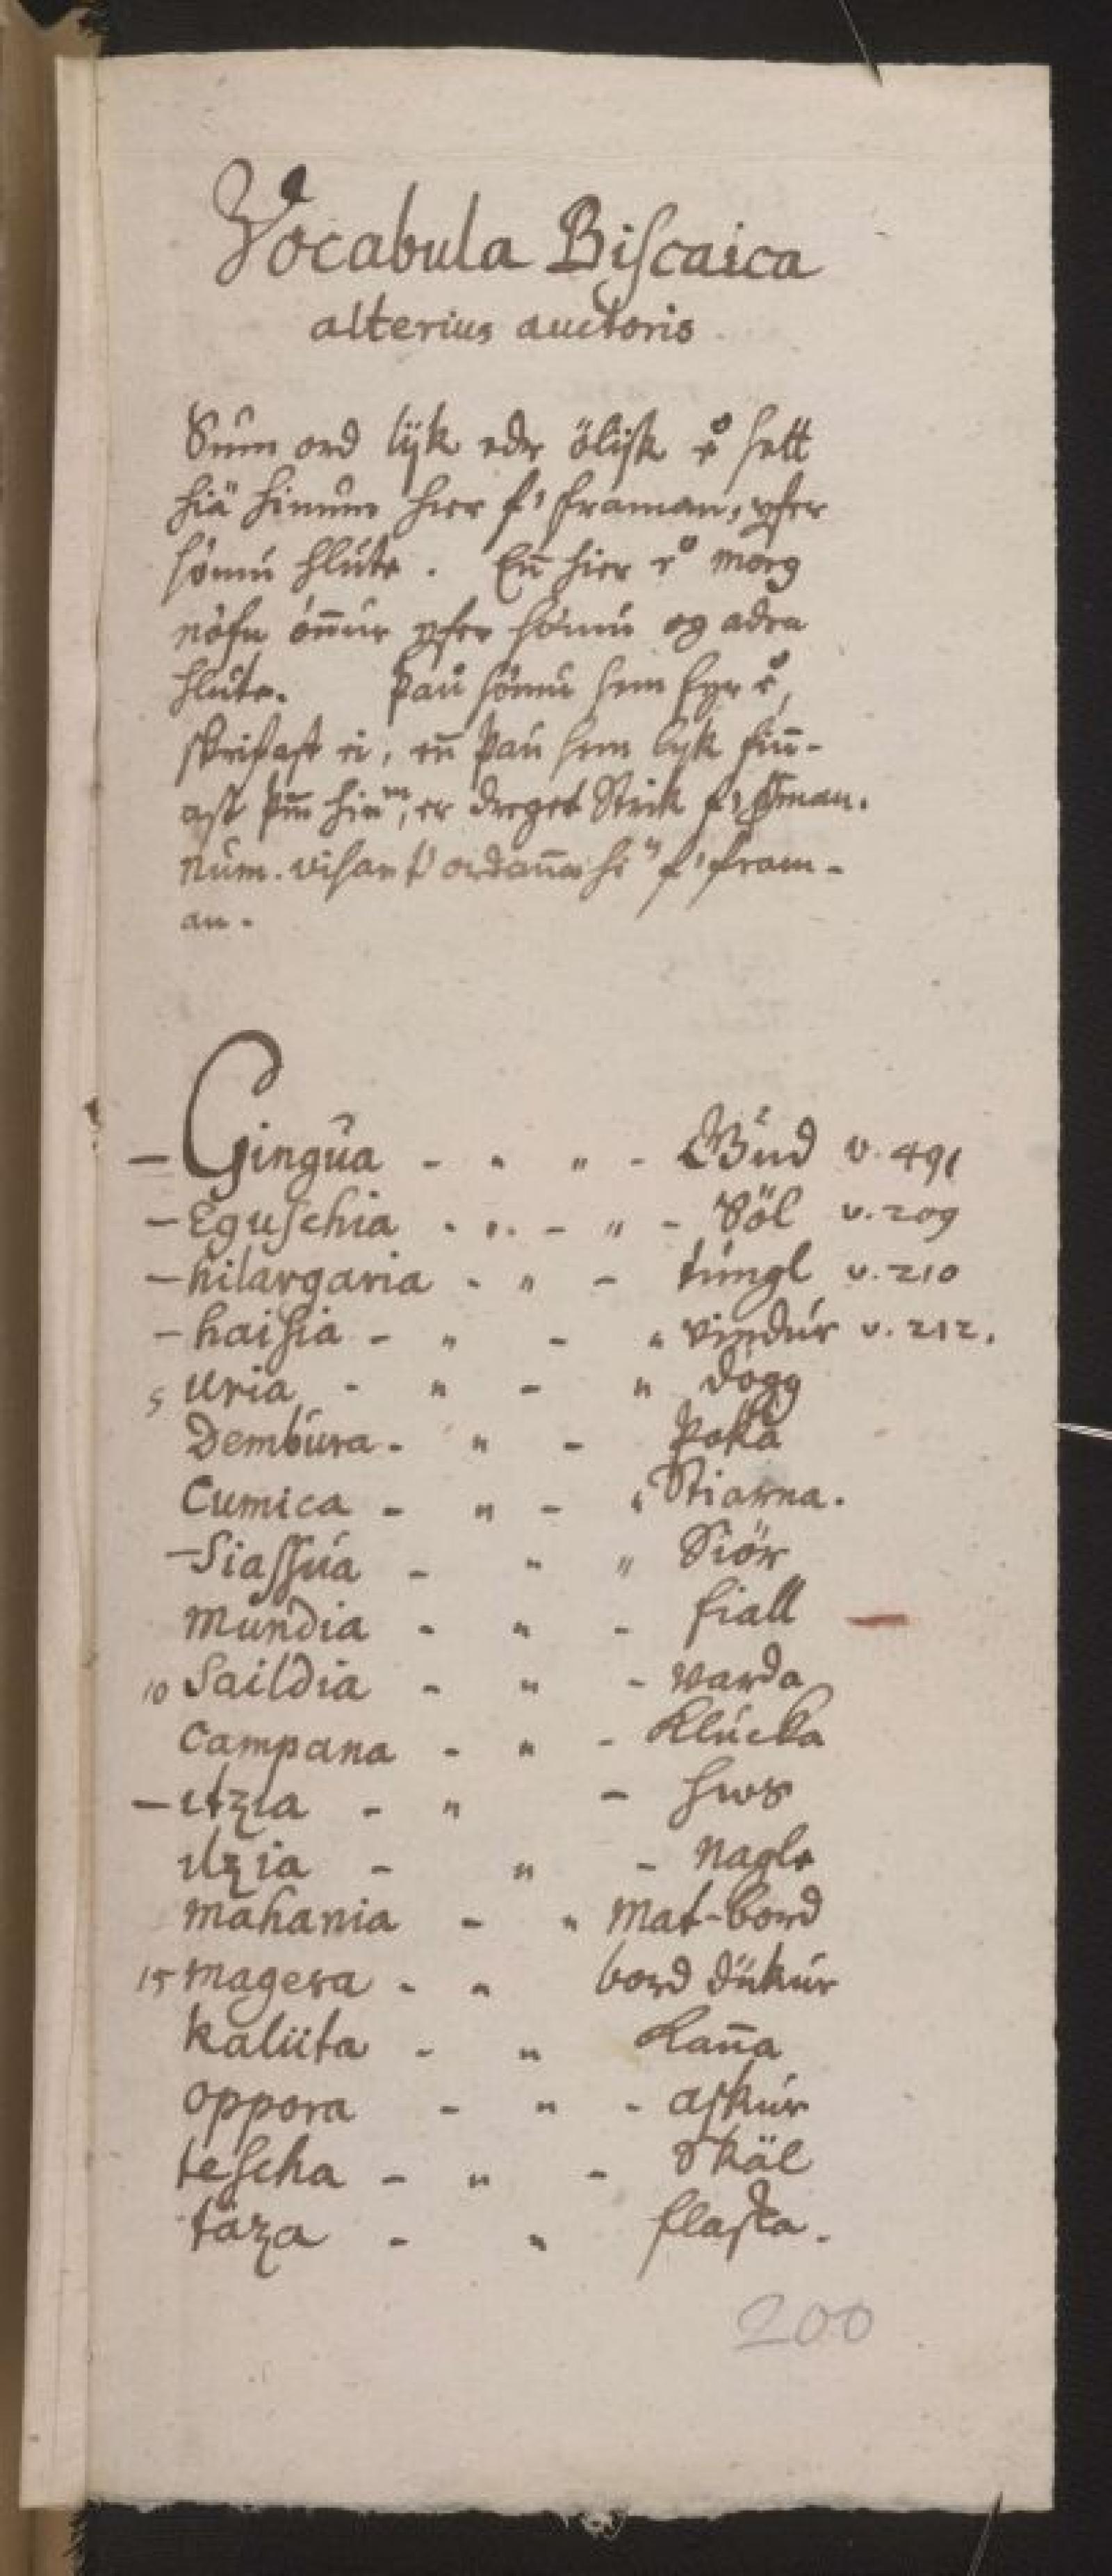 Vocabula Biscaica
alterius auctoris
Sum ord lijk edr ölijk eͦ sett
hiä hinum hier f' framan, yfer
sömu hlute. En̄ hier eͦ mörg
nöfn ön̄ur yfer sömu og adra
hlute. Þau sömu sem fyr eͦ,
skrifast ei, en̄ þau sem lijk fin̄-
ast hinͫ, er dreget Strik
Num. visar ordan̄a f' fram-
an.
– Gingua - " " - Gud v. 491
– Eguschia - " - " - Söl v. 209
– hilargaria - " - tungl v. 210
– haisia - " - " vindur v. 212.
5 uria - " - " dogg
Dembura - " - þoka
Cumica - " - " Stiarna.
– Siassua - " " Siör
Mundia - " - fiall
10 Saildia - " - warda
Campana - " - Klucka
– itzia - " - hws
ilzia - " - Nagle
mahania - " Mat-bord
15 magera - " bord dükur
kaliita - " Kan̄a
oppora - " - askur
tescha - " - Skäl
taza - " flaska.
200